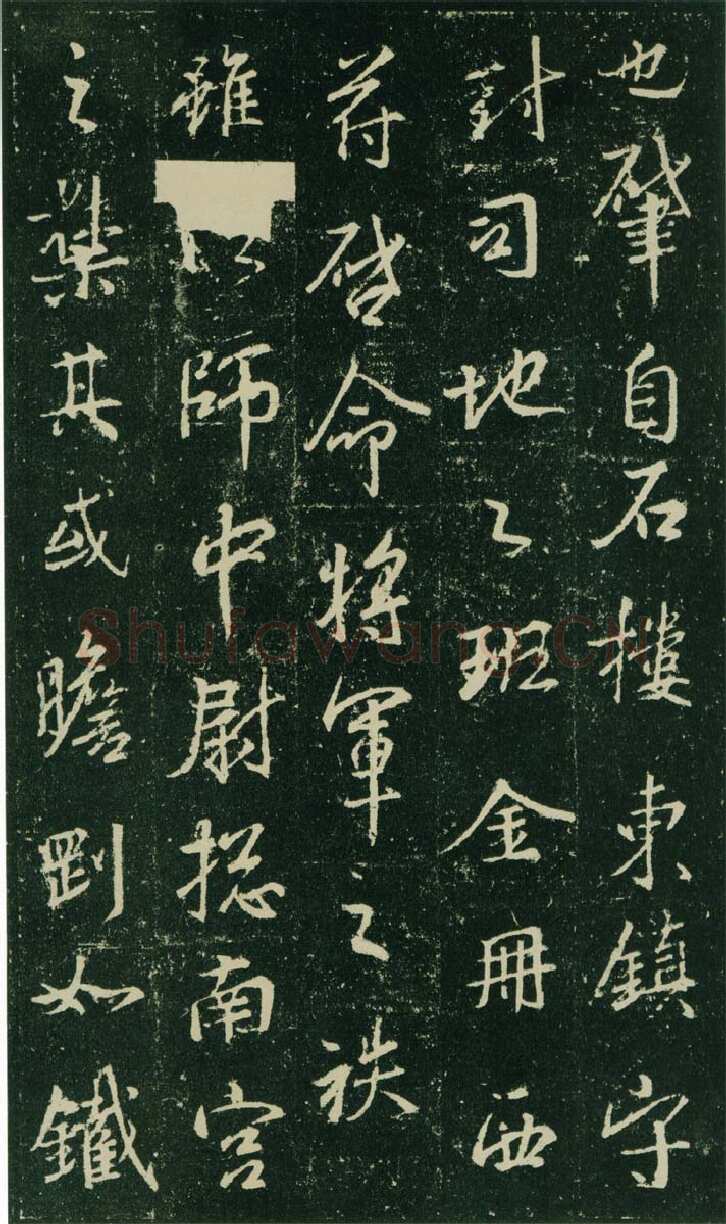 也肇自石樓東鎮守
封司地之班金冊西
符啓命將軍之袟
雖以師中尉揔南宮
之葉其或瞻劉如鐵
Shufawang.CN